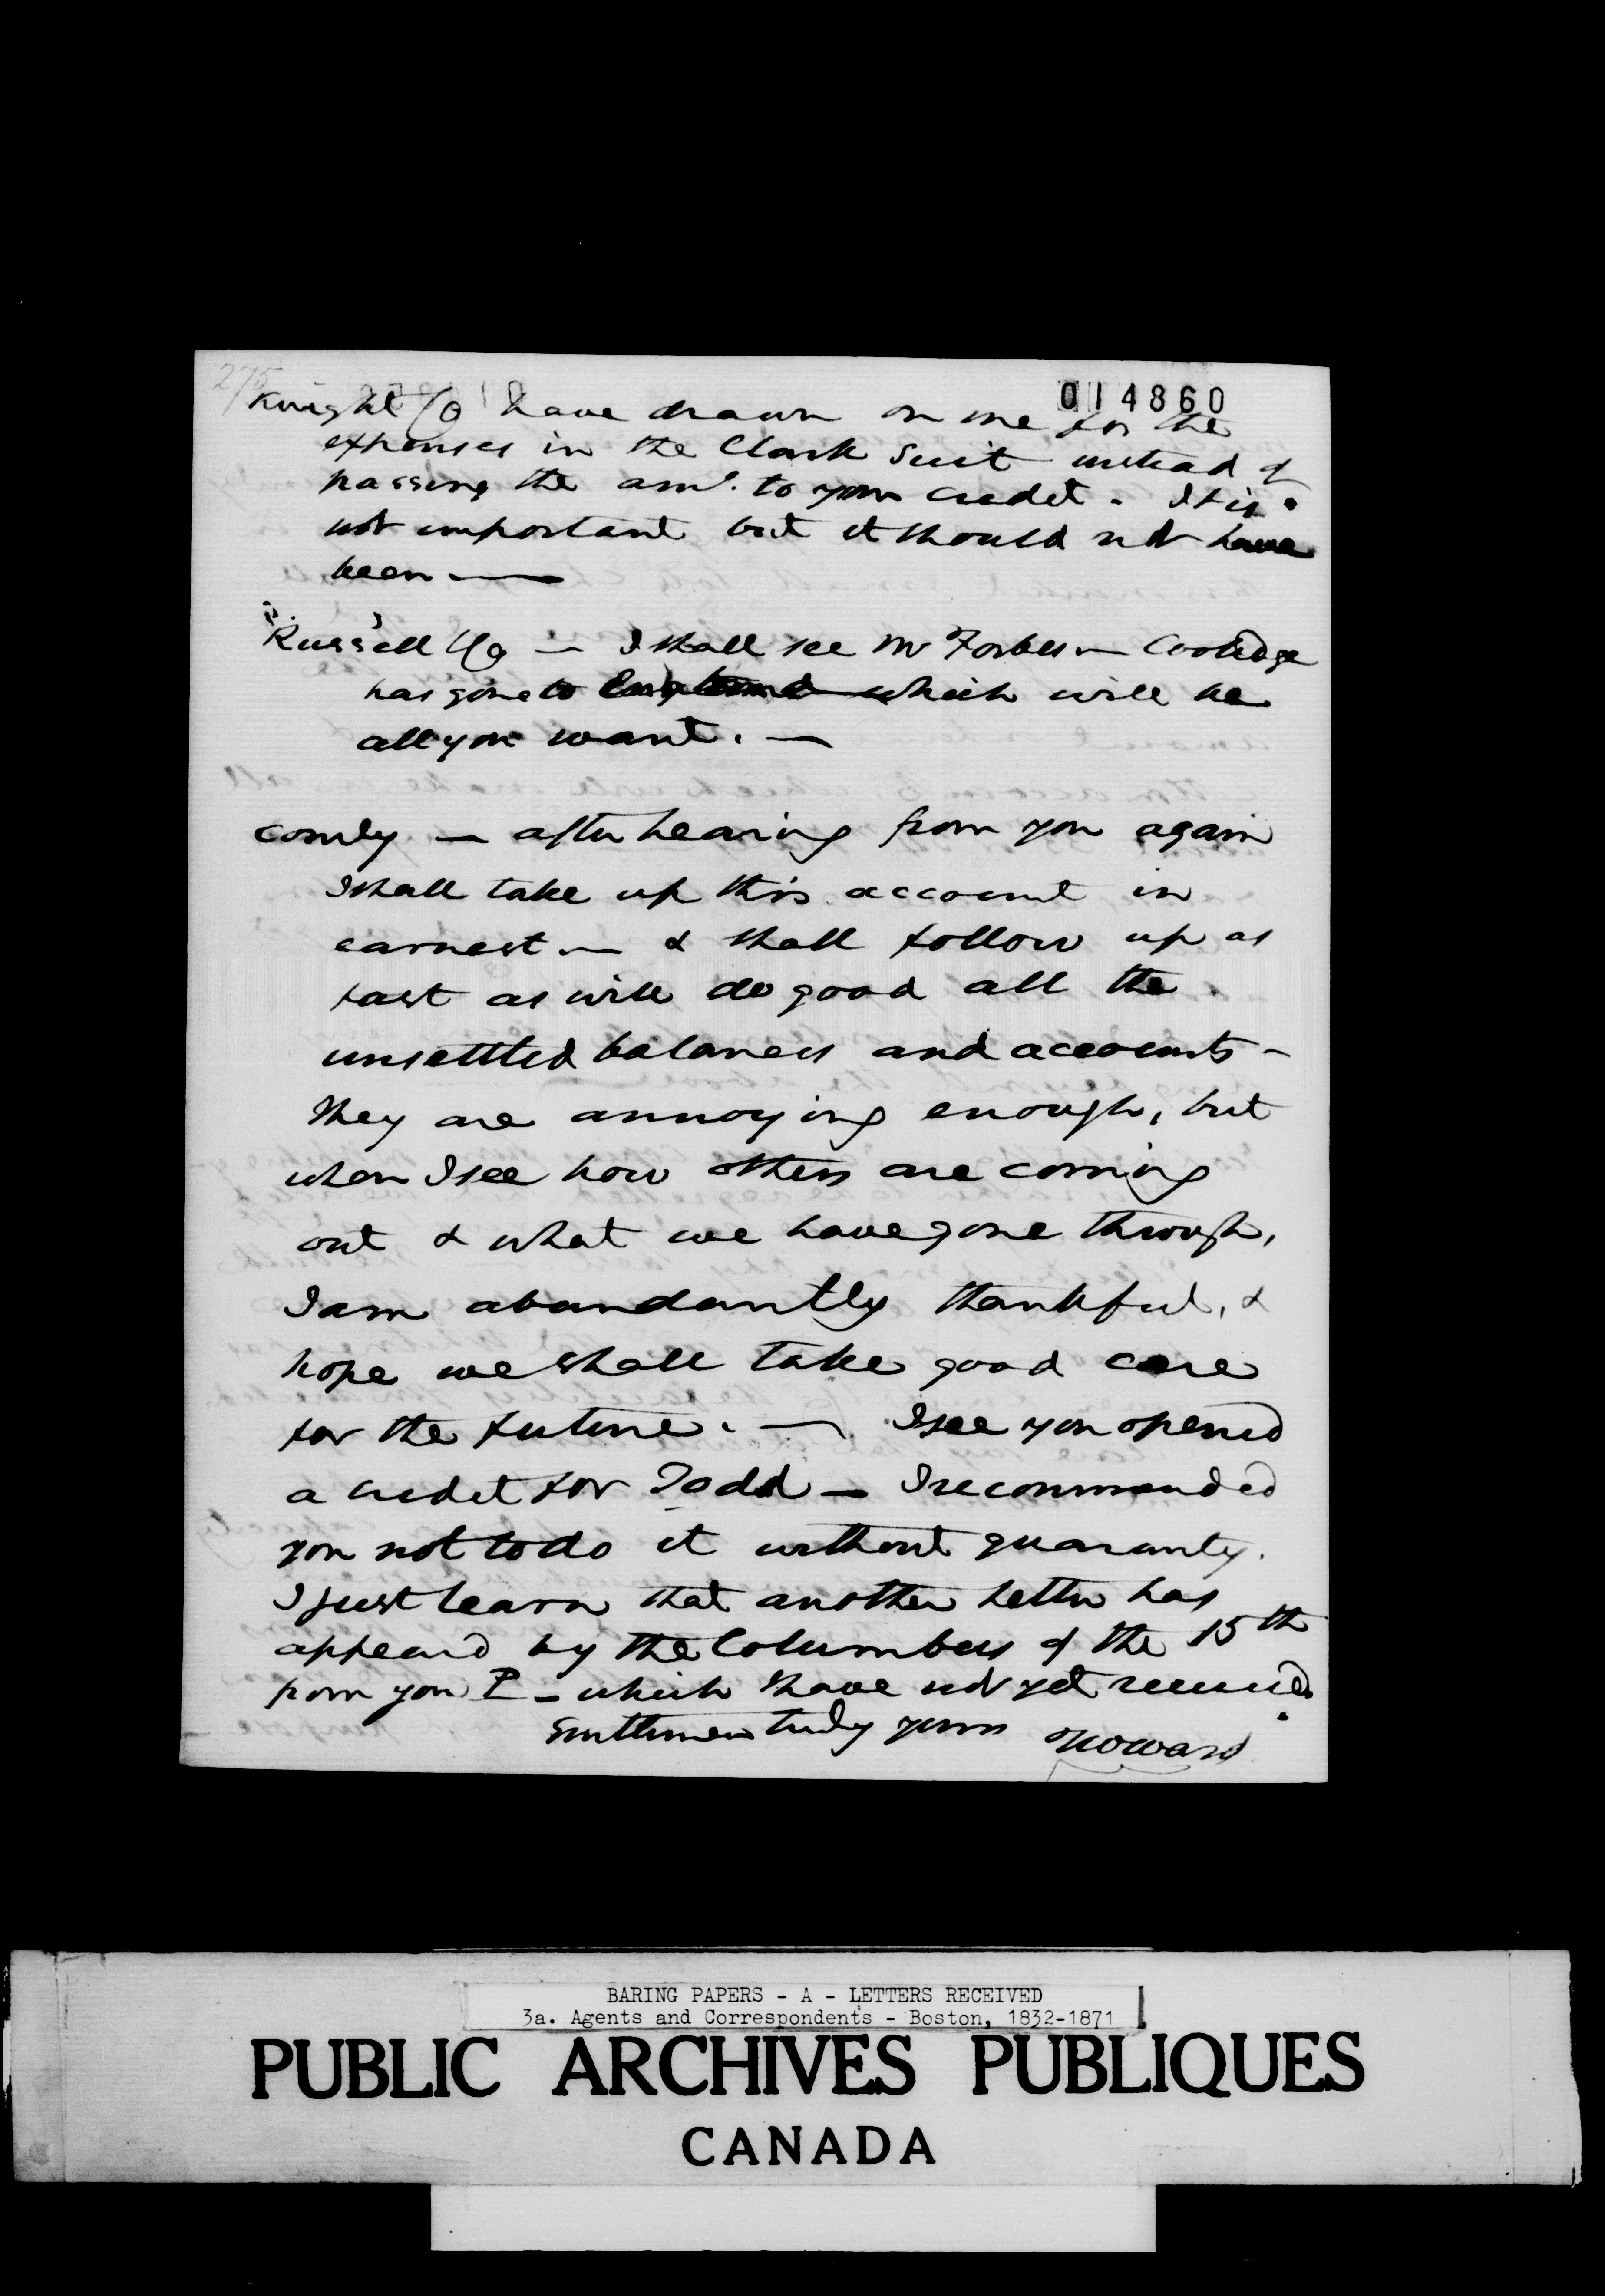 275
014860
Knight & Co have drawn on me for the
expenses in the Clark Suit instead of
passing the amt. to your credit. It is
not important but it should not have
been —
Russell & Co — I shall see Mr Forbes — Coolidge
has gone to England which will be
all you want. —
Comly — after hearing from you again
I shall take up this account in
earnest — & shall follow up as
fast as will do good all the
unsettled balances and accounts —
They are annoying enough, but
when I see how others are coming
out & what we have gone through,
I am abundantly thankful, &
hope we shall take good care
for the future. — I see you opened
a credit for Todd — I recommended
you not to do it without guaranty.
I just learn that another letter has
appeard by the Columbus of the 15th
from you — which I have not yet received.
Gentlemen truly yours TWWard
BARING PAPERS - A - LETTERS RECEIVED
3a. Agents and Correspondents - Boston, 1832-1871
PUBLIC ARCHIVES PUBLIQUES
CANADA